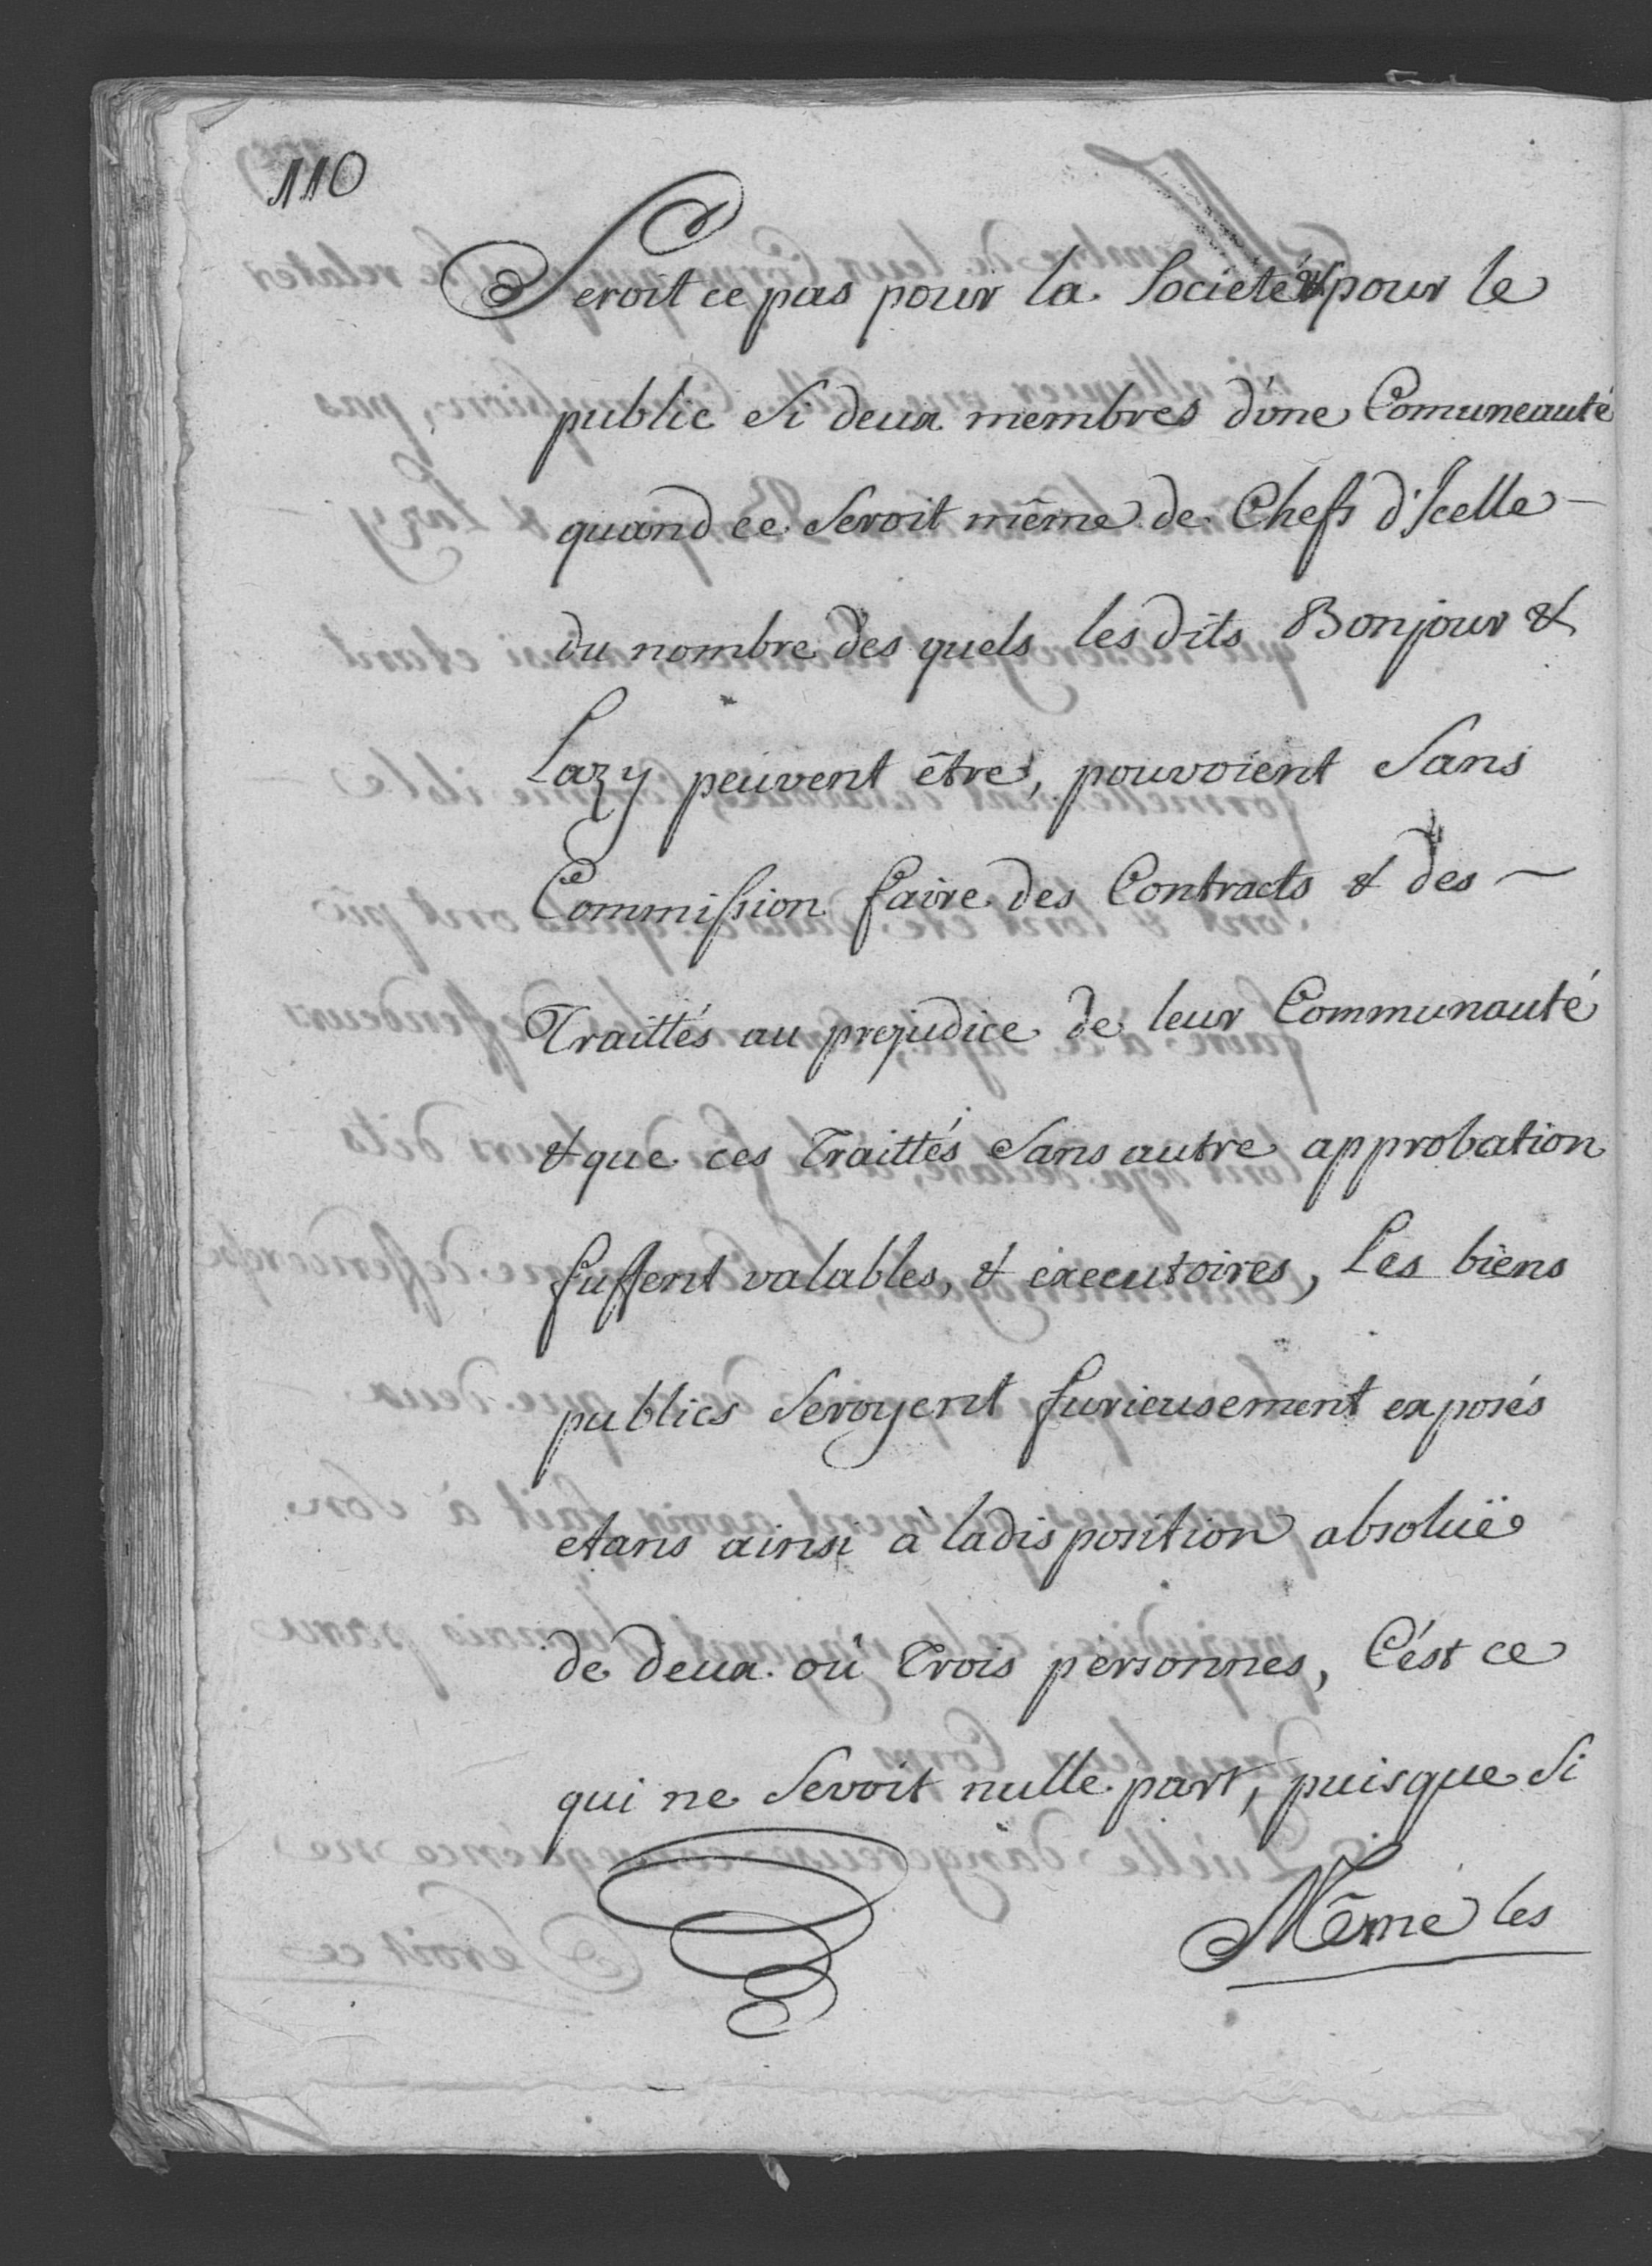 110
Seroit ce pas pour la Societé & pour le
public si deux membres d'une Comuneauté
quand ce seroit même de Chefs d'Icelle
du nombre des quels les dits Bonjour &
Lazy peuvent être, pouvoient sans
Commission faire des Contracts & des
Traittés au prejudice de leur Communauté
& que ces Traittés sans autre approbation
fussent valables, & executoires, Les biens
publics seroyent furieusement exposés
etans ainsi à la disposition absoluë
de deux où Trois personnes, C'ést ce
qui ne seroit nulle part, puisque si
Même les